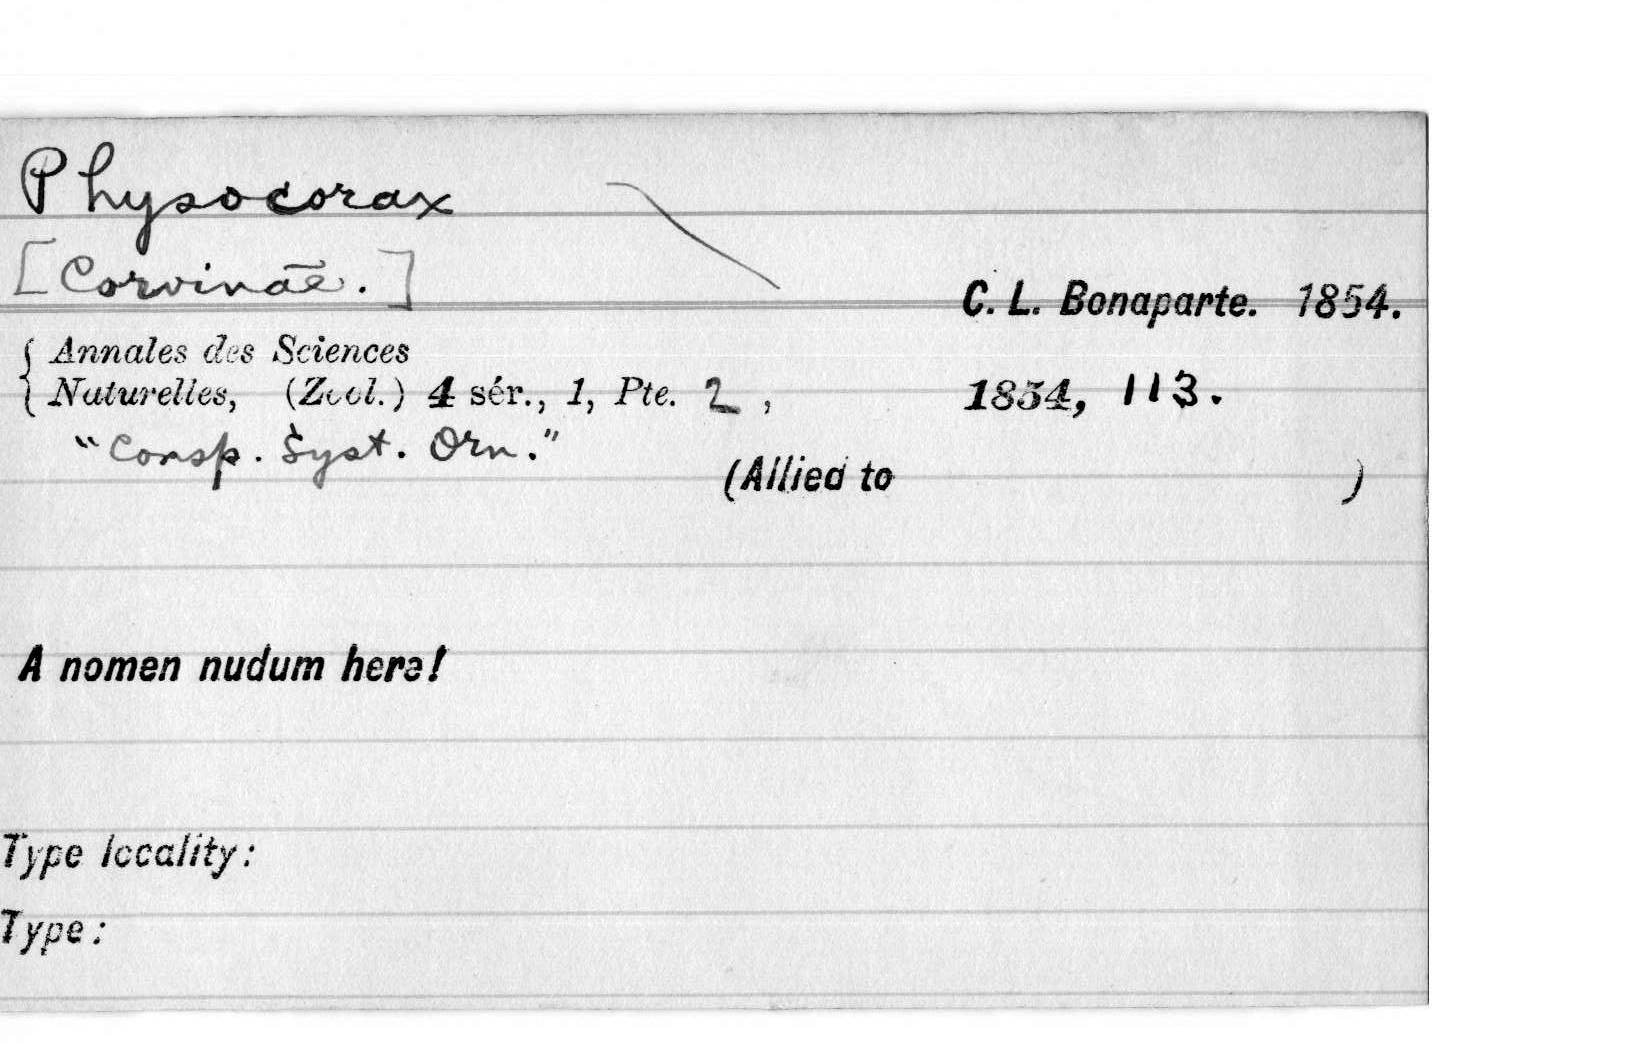 Physocorax
[Corvinae.]
C. L. Bonaparte. 1854.
Annales des Sciences
Naturelles, (Zool.) 4 sér., 1, Pte. 2, 1854, 113.
"Consp. Syst. Orn."
(Allied to )
A nomen nudum here!
Type locality:
Type: